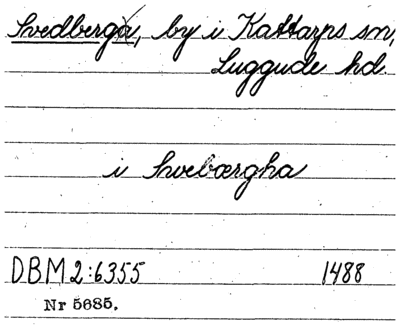 Svedberga, by i Kattarps sn,
Luggude hd.
i Svebærgha
DBM 2:6355 1488
Nr 5685.